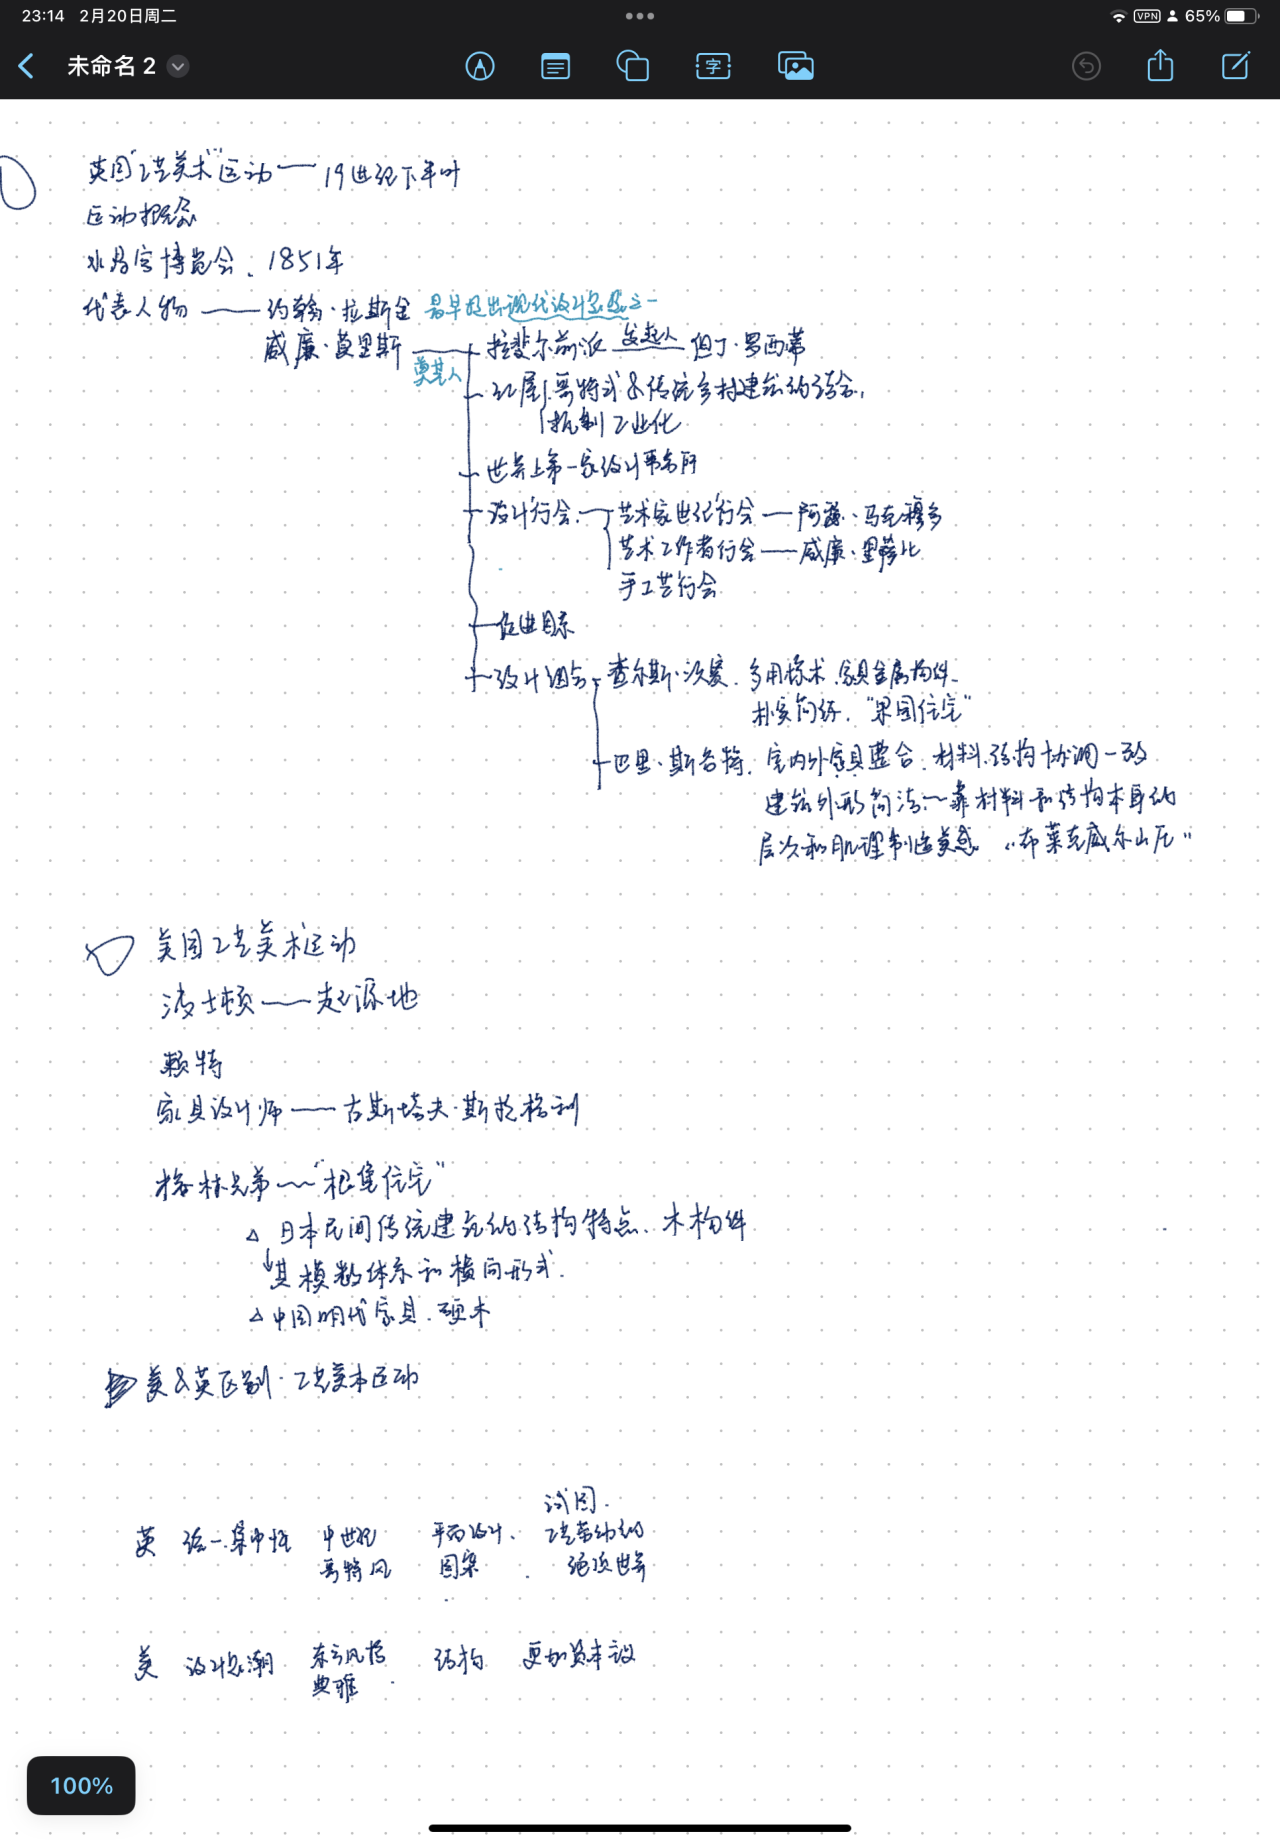 23:14 2月20日周二
VPN 65%
未命名 2
英国"工艺美术"运动——19世纪下半叶
运动概念
水晶宫博览会、1851年
代表人物——约翰·拉斯金 最早提出现代设计思想之一
威廉·莫里斯 奠基人
拉斐尔前派 发起人 但丁·罗西蒂
红屋 哥特式&传统乡村建筑的结合,
抵制工业化
世界上第一家设计事务所
设计行会. 艺术家世纪行会——阿瑟·马克穆多
艺术工作者行会——威廉·里萨比
手工艺行会
促进
设计 查尔斯·沃赛. 多用 木. 家具金属构件.
朴实简练. "果园住宅"
巴里·斯各特. 室内外家具整合. 材料.结构协调一致
建筑外形简洁~靠材料和结构本身的
层次和肌理制造美感 "布莱克威尔山庄"
美国工艺美术运动
波士顿——起源地
赖特
家具设计师——古斯塔夫·斯提格利
格林兄弟~"根堡住宅"
△ 日本民间传统建筑的结构特点、木构件
↓其模数体系和横向形式.
△中国明代家具.硬木
美&英区别·工艺美术运动
试图.
英 统一.集中性 中世纪 平面设计. 工艺劳动的
哥特风 图案 . 绝顶世界
美 设计思潮 东方风格 结构 更加资本
典雅
100%